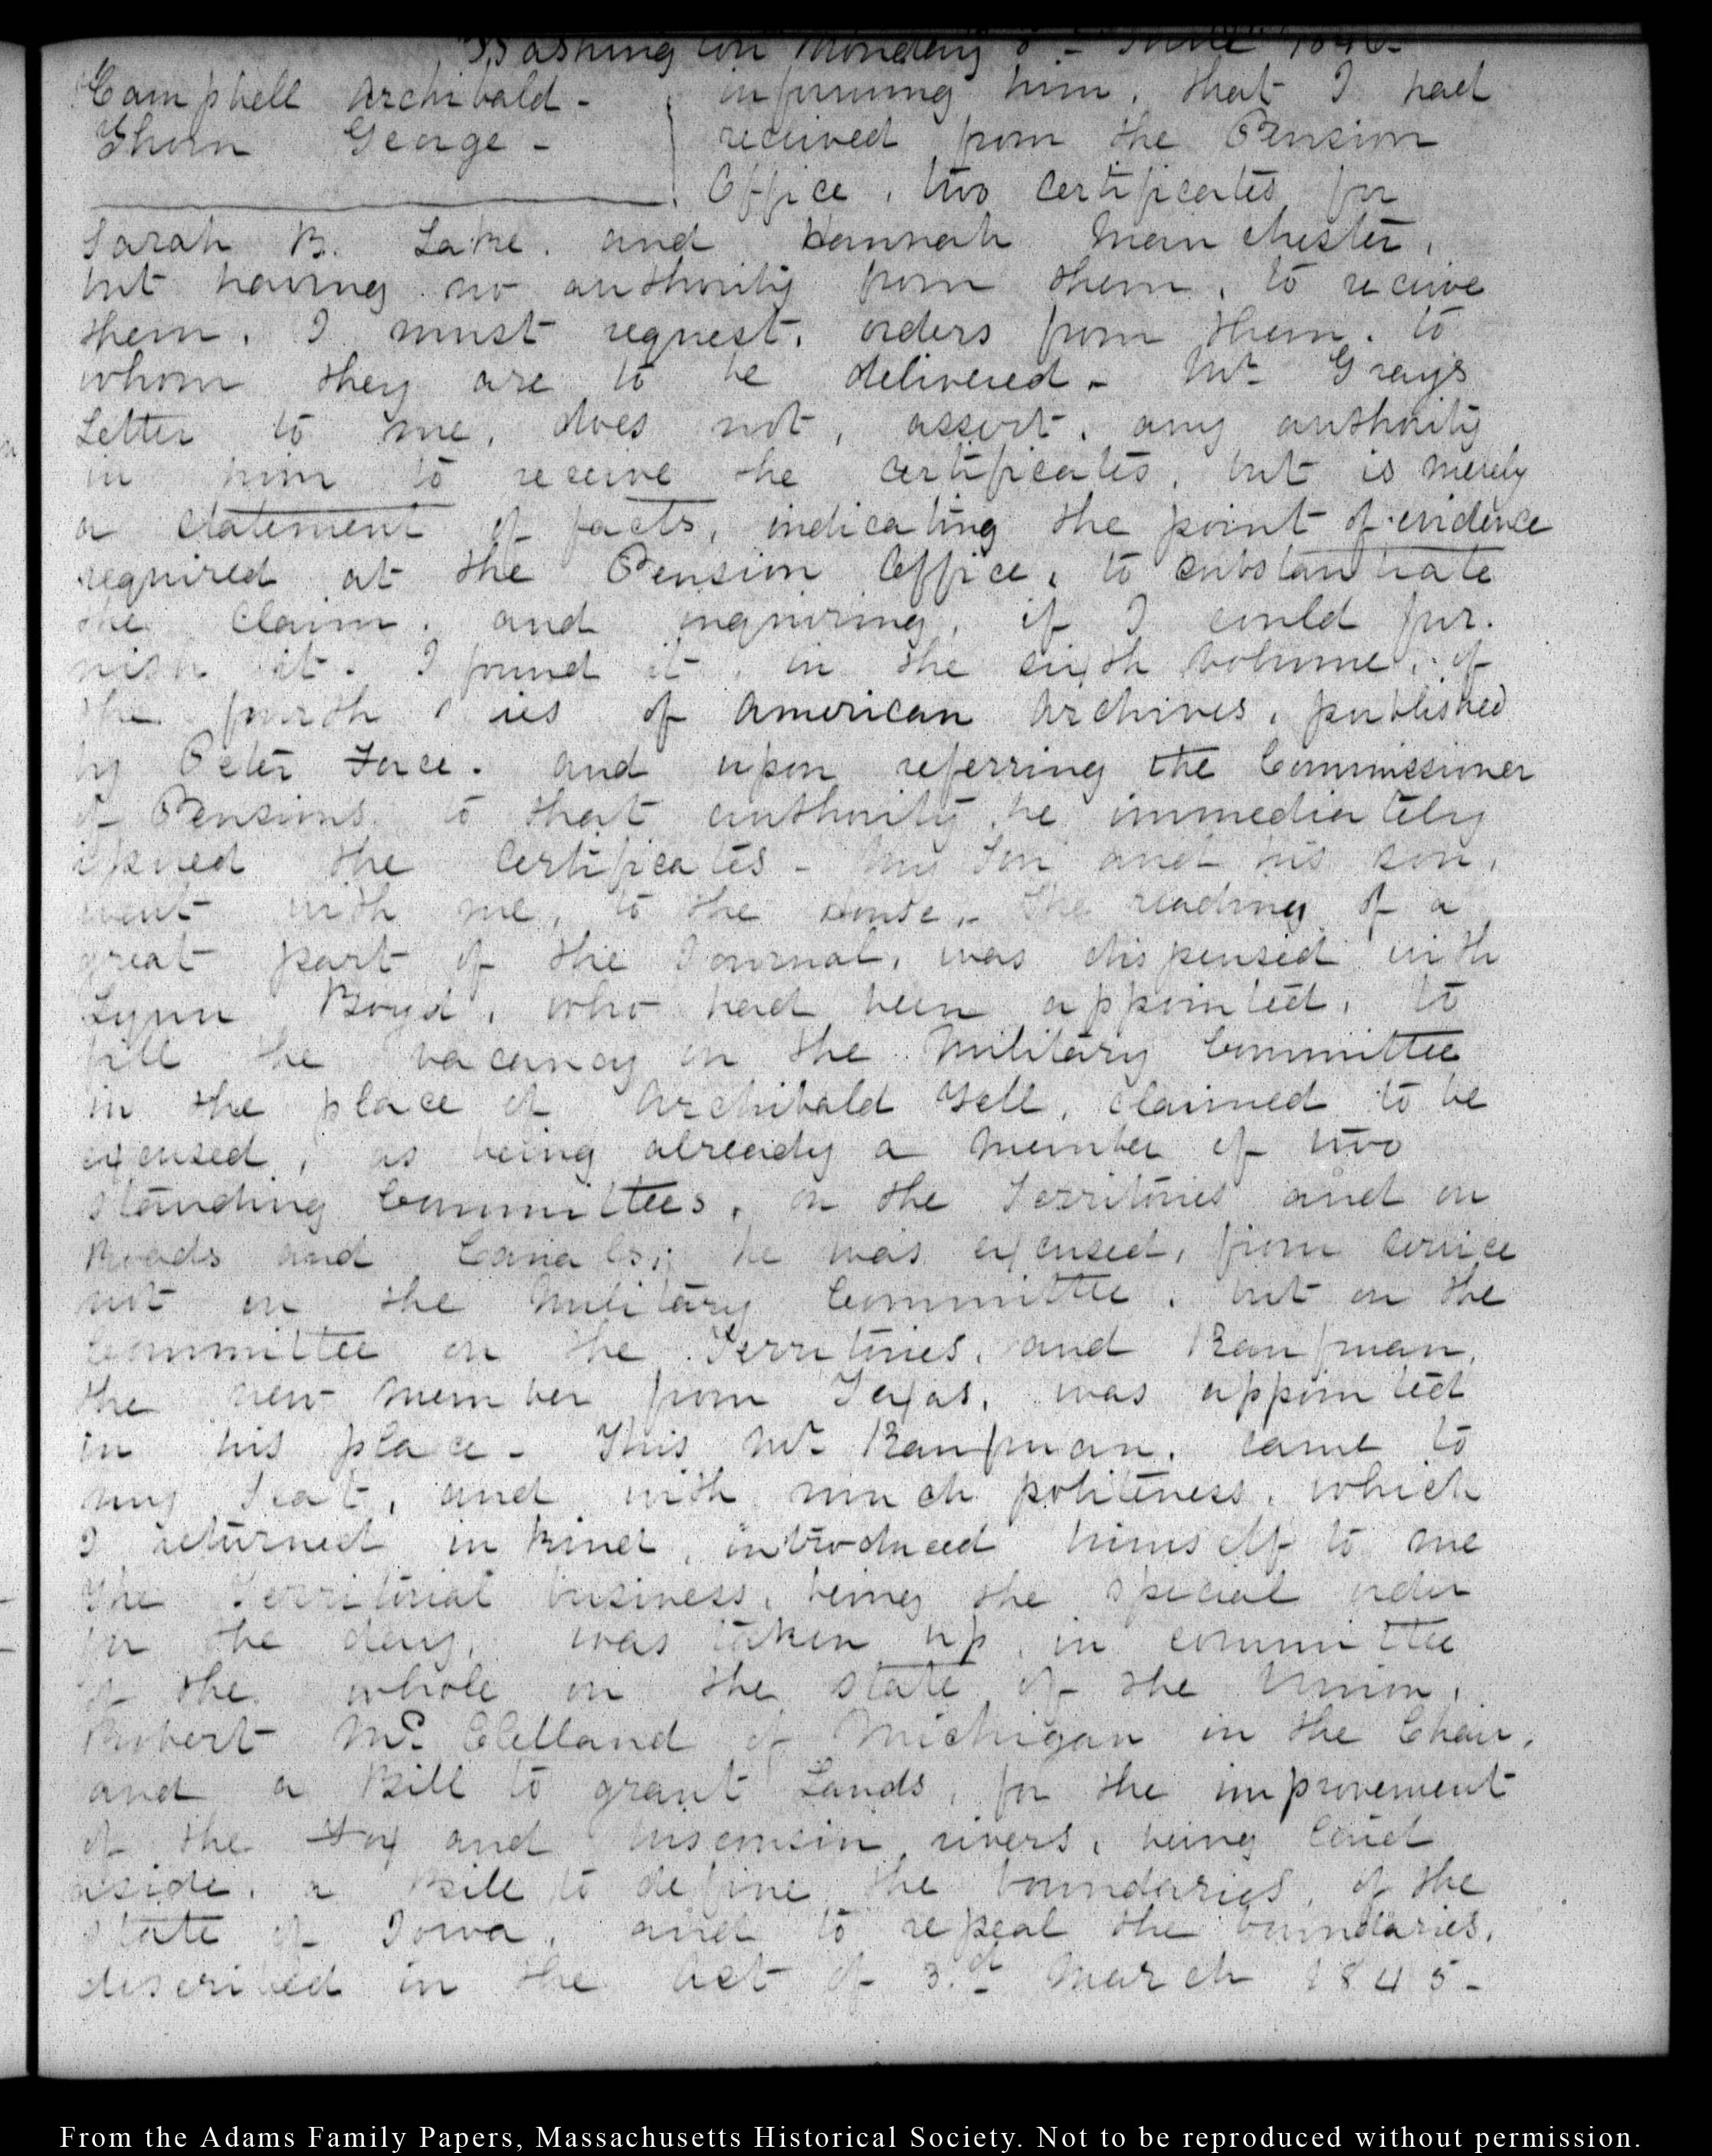 Washington Monday 8 - June 1846-
Campbell Archibald -
Thorn George -
informing him, that I had
received from the Pension
Office, two certificates for
Sarah B. Lake, and Hannah Manchester,
but having no authority from them, to receive
them, I must request, orders from them, to
whom they are to be delivered - Mr. Gray's
Letter to me, does not, assert, any authority
in him to receive the certificates, but is merely
a statement of facts, indicating the point of evidence
required at the Pension Office, to substantiate
the claim, and inquiring, if I could fur-
nish it. I found it, in the sixth volume, of
the fourth Series of American Archives, published
by Peter Force. and upon referring the Commissioner
of Pensions, to that authority he immediately
issued the certificates - My Son and his son,
went with me, to the House,. The reading of a
great part of the Journal, was dispensed with
Lynn Boyd, who had been appointed, to
fill the vacancy on the Military Committee
in the place of Archibald Yell, claimed to be
excused, as being already a member of two
standing Committees, on the Territories and on
Roads and Canals; he was excused, from service
not on the Military Committee, but on the
Committee on the Territories, and Kaufman,
the new member from Texas, was appointed
in his place - This Mr. Kaufman, came to
my Seat, and with much politeness, which
I returned in kind, introduced himself to me
The Territorial business, being the special order
for the day, was taken up, in committee
of the whole on the state of the Union,
Robert McClelland of Michigan in the Chair,
and a Bill to grant Lands, for the improvement
of the Fox and Wisconsin rivers, being laid
aside, a Bill to define the boundaries, of the
State of Iowa, and to repeal the boundaries,
described in the act of 3.d March 1845-
From the Adams Family Papers, Massachusetts Historical Society. Not to be reproduced without permission.